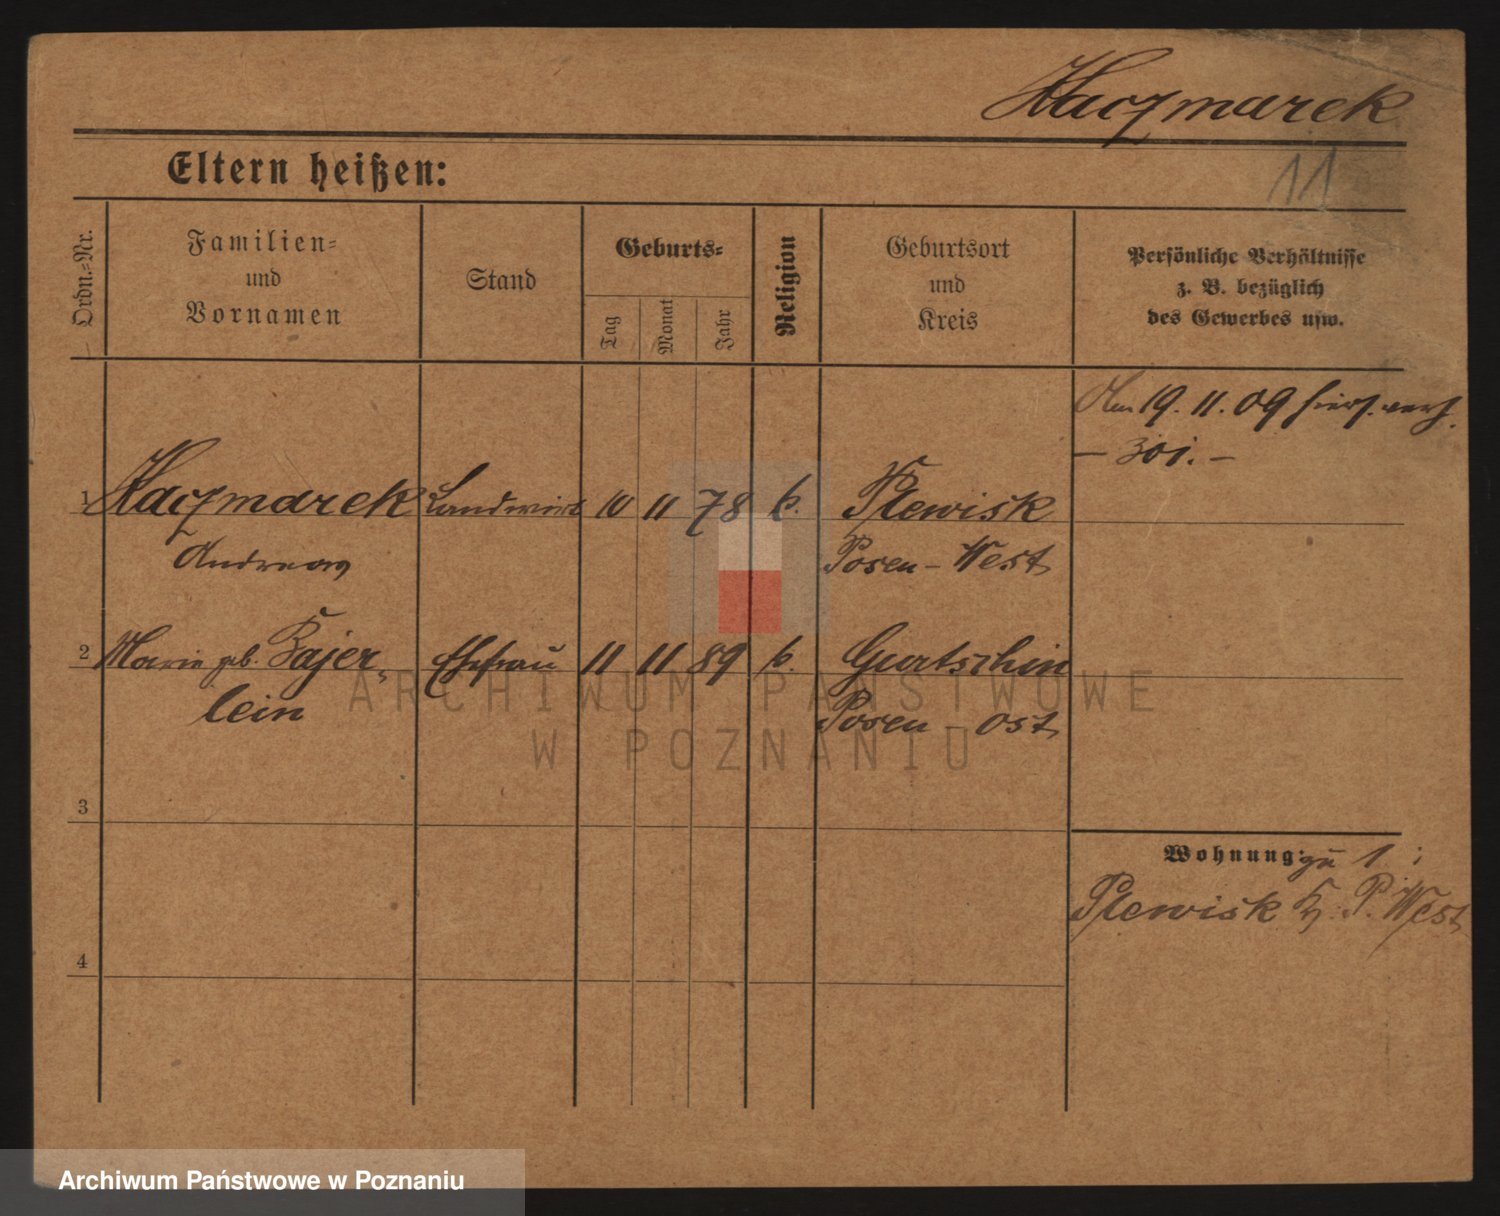 Kaczmarek
11
Eltern heißen:
Ordn.-Nr.
Familien-
und
Vornamen
Stand
Geburts-
Tag
Monat
Jahr
Religion
Geburtsort
und
Kreis
Persönliche Verhältnisse
z. B. bezüglich
des Gewerbes usw.
Am 19. 11. 09 hier
– 301. –
1 Kaczmarek Landwirt 10 11 78 k. Plewisk
Andreas Posen-West
2 Marie geb. Bajer- Ehefrau 11 11 89 k. Gurtschin
lein Posen-Ost
ARCHIWUM PAŃSTWOWE
W POZNANIU
3
Wohnung: zu 1:
Plewisk Kr. P. West
4
Archiwum Państwowe w Poznaniu